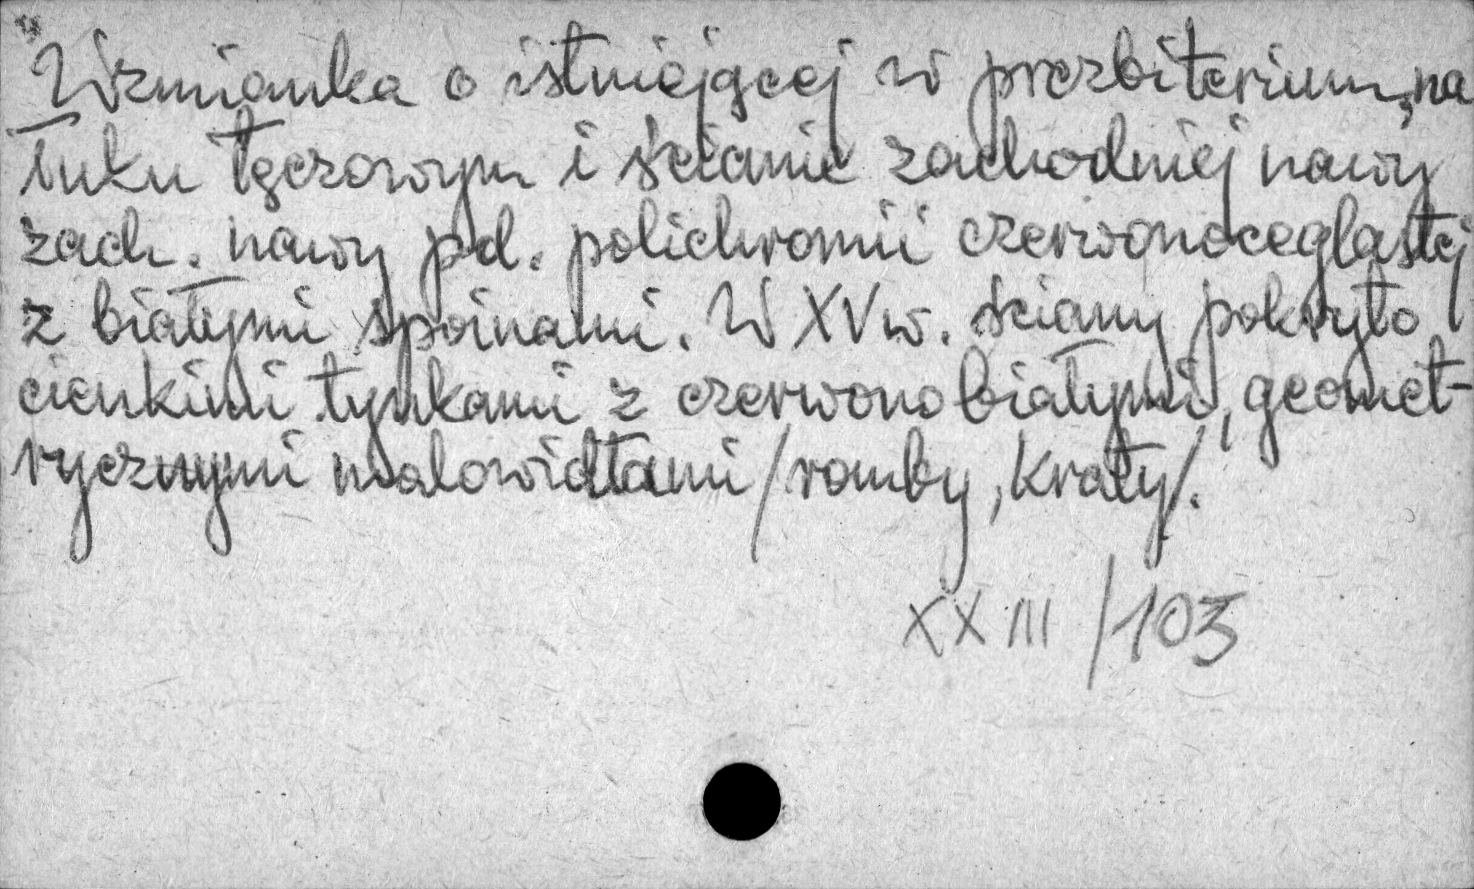 Wzmianka o istniejącej w prezbiterium, na
łuku tęczowym i ścianie zachodniej nawy
zach. nawy pd. polichromii czerwonoceglastej
z białymi spoinami. W XV w. ściany pokryto
cienkimi tynkami z czerwono białymi, geomet-
rycznymi malowidłami /romby, kraty/.
XXIII/103